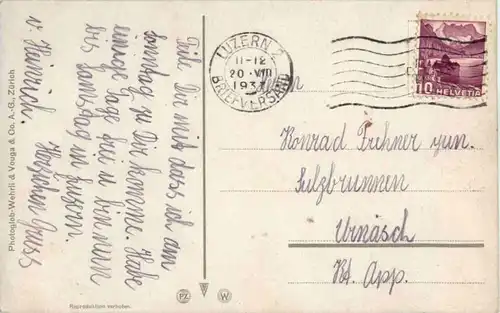 Teile Dir mit dass ich am
Sonntag zu Dir komme. Habe
einige Tage frei u bin nun
bis Samstag in Luzern.
Herzlichen Gruss
v. Heinrich.
Photoglob-Wehrli & Vouga & Co. A.-G., Zürich
LUZERN 2
11-12
20. VIII
1937
BRIEFVERSAND
10 HELVETIA
Konrad Frehner jun.
Sulzbrunnen
Urnäsch
Kt. App.
PZ W
Reproduktion verboten.